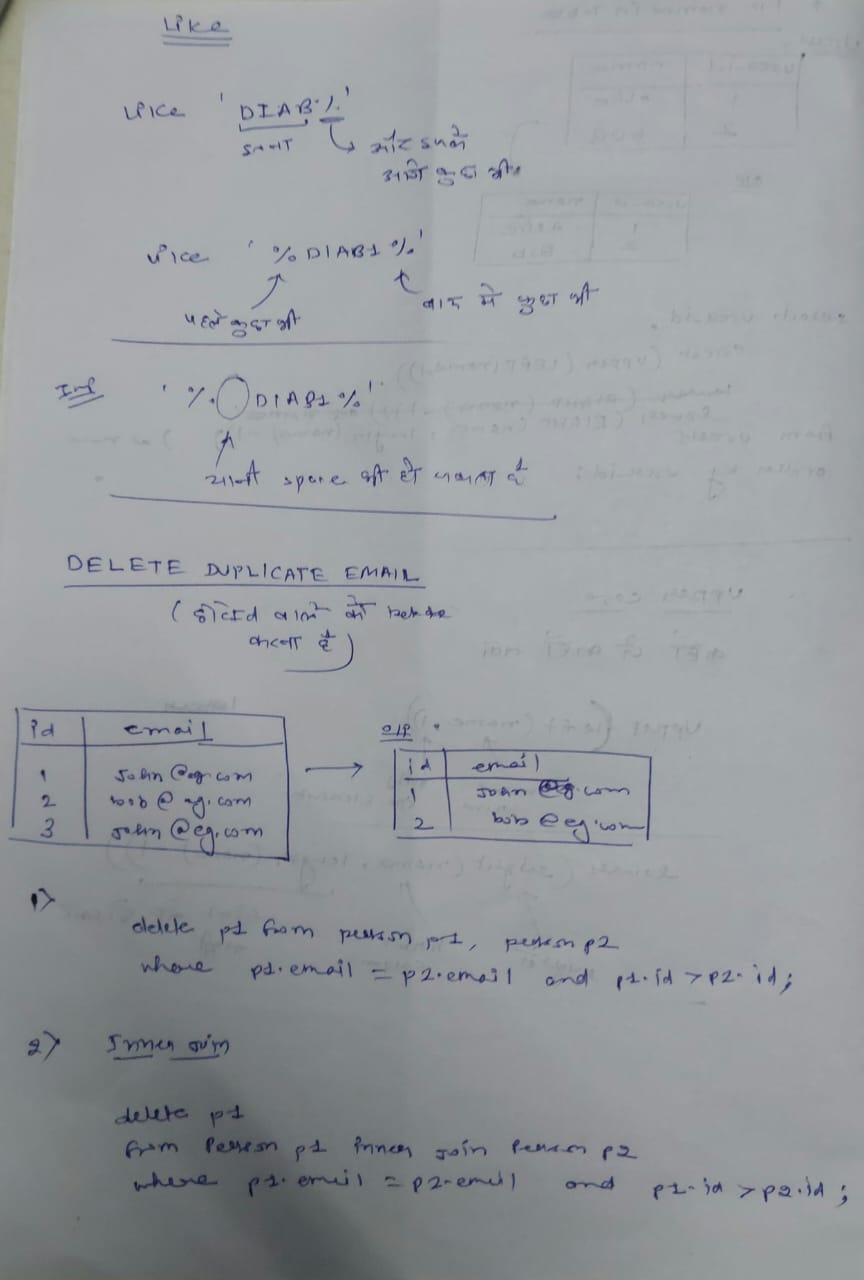 Like
Like 'DIAB%'
इतना
और इसके
आगे कुछ भी
Like '%DIAB1%'
पहले कुछ भी
बाद में कुछ भी
Imp
'% DIAB1%'
यानी space भी हो सकता है
DELETE DUPLICATE EMAIL
( छोटे id वाले को
करना है )
id email
1 John@eg.com
2 bob@eg.com
3 John@eg.com
O/P
id email
1 John@eg.com
2 bob@eg.com
1)
delete p1 from person p1, person p2
where p1.email = p2.email and p1.id > p2.id;
2) Inner Join
delete p1
from Person p1 inner join Person p2
where p1.email = p2.email and p1.id > p2.id;